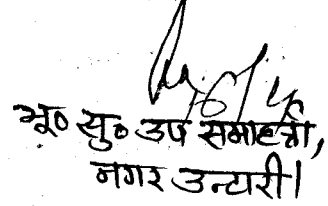 भू० सु० उप समाहर्त्ता,
नगर उन्टारी।